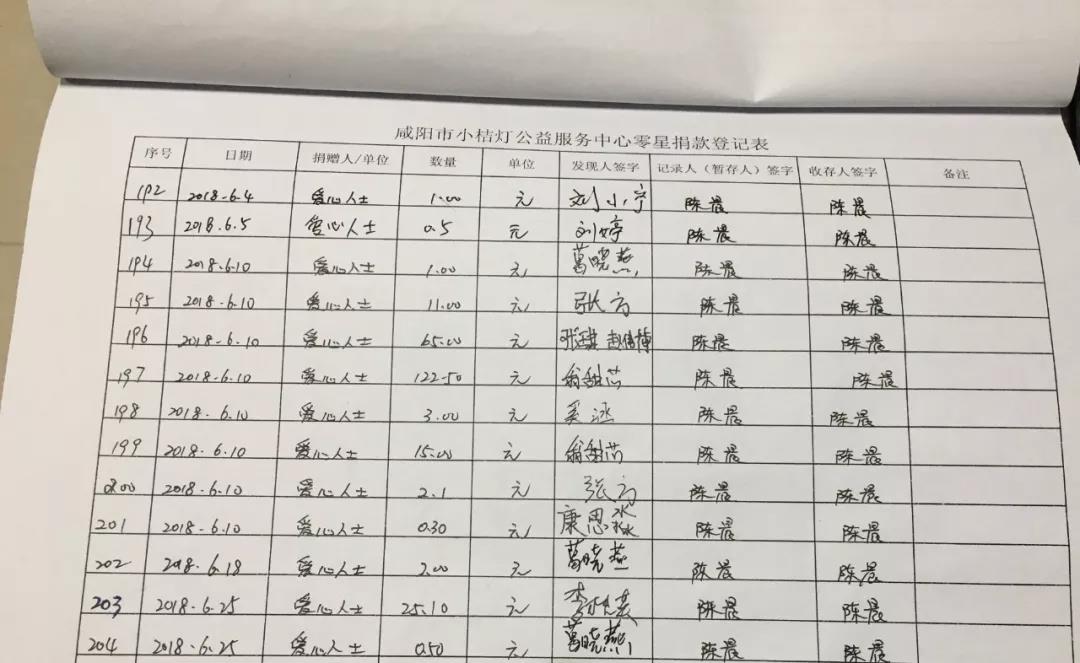 咸阳市小桔灯公益服务中心零星捐款登记表
序号 日期 捐赠人/单位 数量 单位 发现人签字 记录人（暂存人）签字 收存人签字 备注
192 2018.6.4 爱心人士 1.00 元 刘小宁 陈晨 陈晨
193 2018.6.5 爱心人士 0.5 元 刘婷 陈晨 陈晨
194 2018.6.10 爱心人士 1.00 元 葛晓燕 陈晨 陈晨
195 2018.6.10 爱心人士 11.00 元 张方 陈晨 陈晨
196 2018.6.10 爱心人士 65.00 元 陈晨 陈晨
197 2018.6.10 爱心人士 122.50 元 翁甜芯 陈晨 陈晨
198 2018.6.10 爱心人士 3.00 元 奚涵 陈晨 陈晨
199 2018.6.10 爱心人士 15.00 元 翁甜芯 陈晨 陈晨
200 2018.6.10 爱心人士 2.1 元 张方 陈晨 陈晨
201 2018.6.10 爱心人士 0.30 元 康思淼 陈晨 陈晨
202 2018.6.18 爱心人士 2.00 元 葛晓燕 陈晨 陈晨
203 2018.6.25 爱心人士 25.10 元 陈晨 陈晨
204 2018.6.25 爱心人士 0.50 元 葛晓燕 陈晨 陈晨